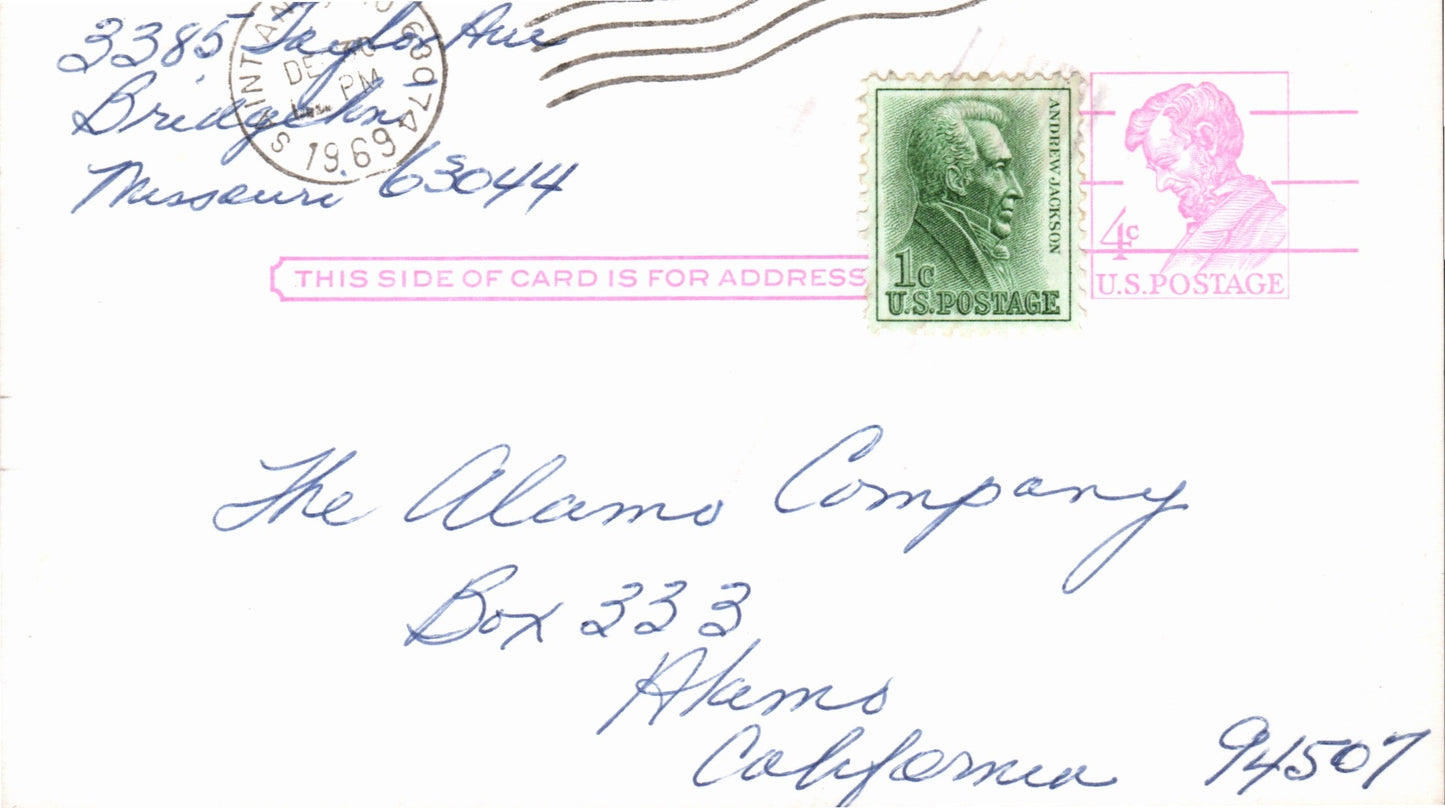 3385 Taylor Ave
Bridgeton
Missouri. 63044
SAINT ANN MO 63074
DE
PM
1969
ANDREW JACKSON
1c
U.S. POSTAGE
4c
U.S. POSTAGE
THIS SIDE OF CARD IS FOR ADDRESS
The Alamo Company
Box 333
Alamo
California 94507